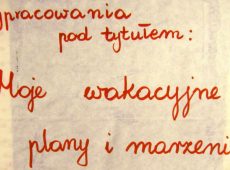 pracowania
pod tytułem:
Moje wakacyjne
plany i marzeni